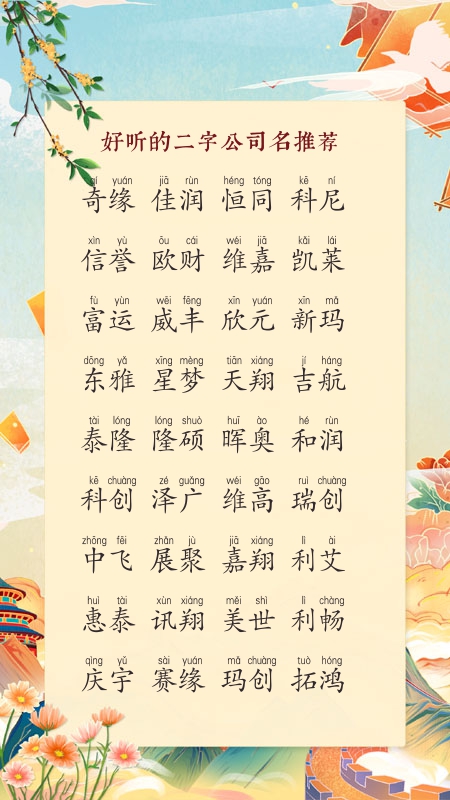 好听的二字公司名推荐
qí yuán jiā rùn héng tóng kē ní
奇缘 佳润 恒同 科尼
xìn yù ōu cái wéi jiā kǎi lái
信誉 欧财 维嘉 凯莱
fù yùn wēi fēng xīn yuán xīn mǎ
富运 威丰 欣元 新玛
dōng yǎ xīng mèng tiān xiáng jí háng
东雅 星梦 天翔 吉航
tài lóng lóng shuò huī ào hé rùn
泰隆 隆硕 晖奥 和润
kē chuàng zé guǎng wéi gāo ruì chuàng
科创 泽广 维高 瑞创
zhōng fēi zhǎn jù jiā xiáng lì ài
中飞 展聚 嘉翔 利艾
huì tài xùn xiáng měi shì lì chàng
惠泰 讯翔 美世 利畅
qìng yǔ sài yuán mǎ chuàng tuò hóng
庆宇 赛缘 玛创 拓鸿